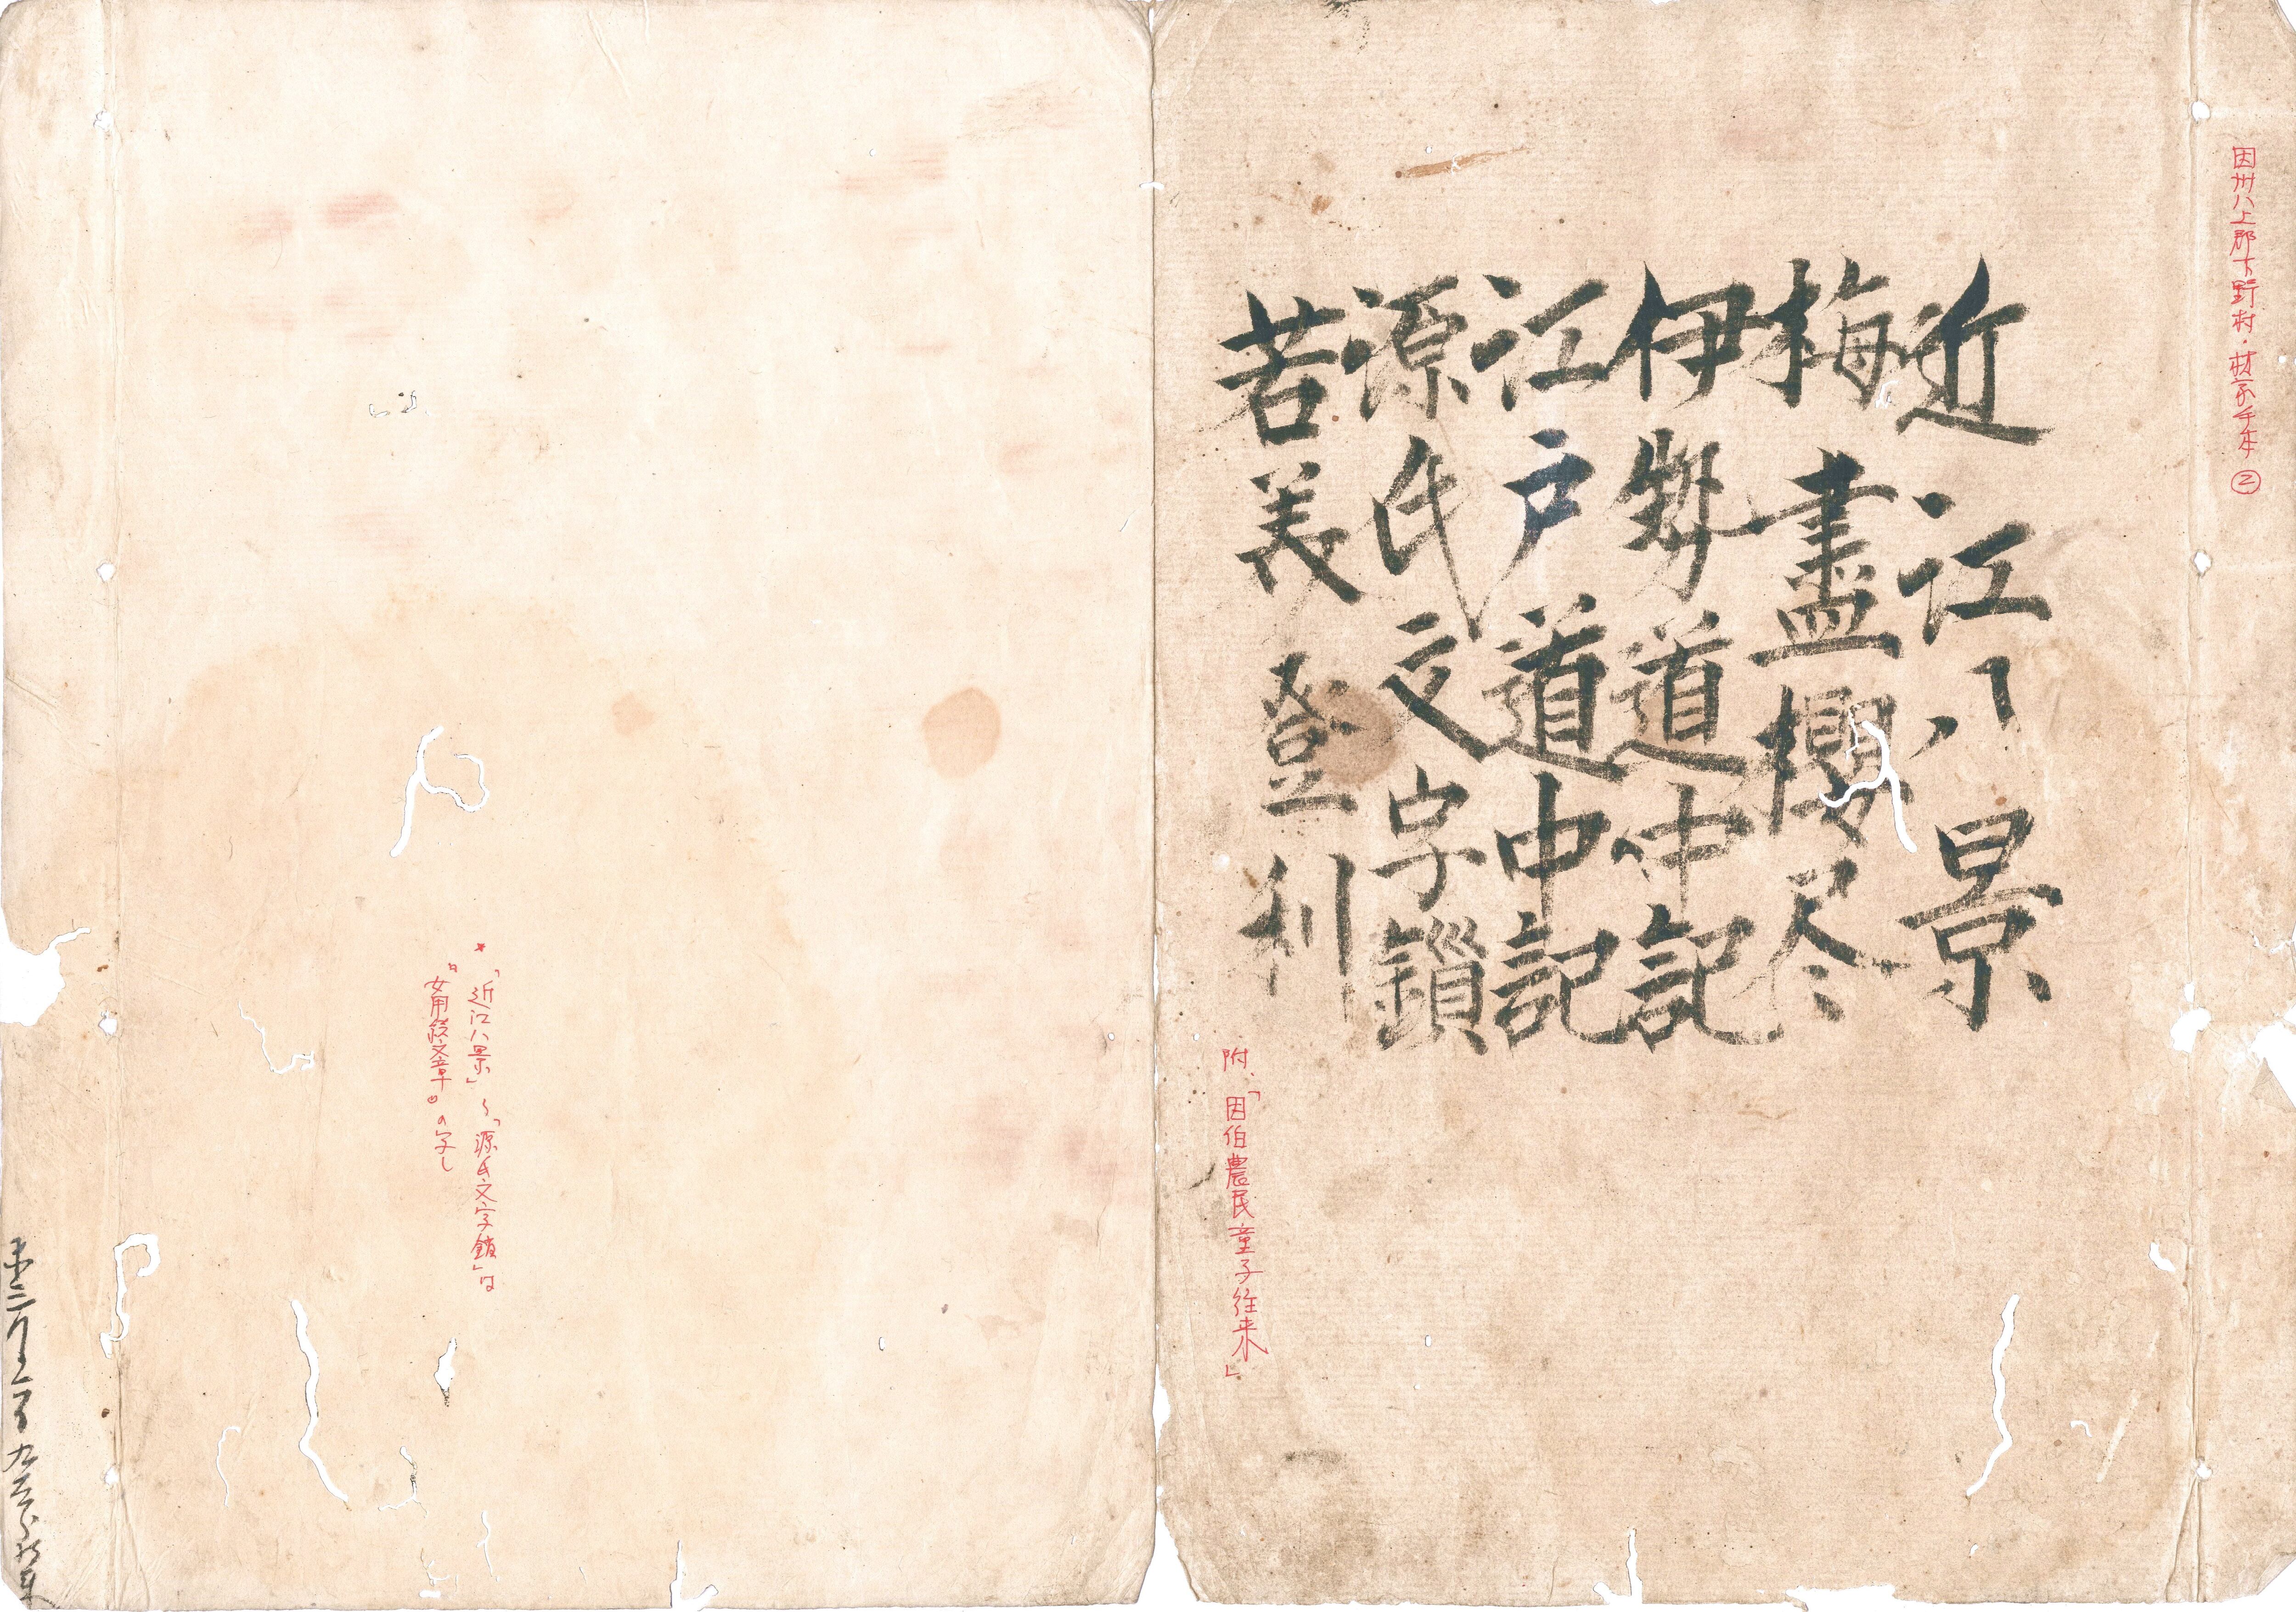 因州八上郡下野村・林家手本②
近江八景
梅盡櫻尽
伊勢道中記
江戸道中記
源氏文字鎖
若美登利
附、「因伯農民童子往来」
*「近江八景」〜「源氏文字鎖」は
『女用続文章』の写し